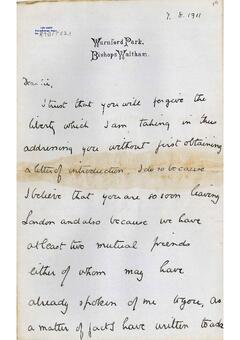 7. 8. 1911
Warnford Park,
Bishops Waltham.
Dear Sir,
I trust that you will forgive the
liberty which I am taking in thus
addressing you without first obtaining
a letter of introduction. I do so because
I believe that you are so soon leaving
London and also because we have
at least two mutual friends
either of whom may have
already spoken of me to you, as
a matter of fact I have written to ask